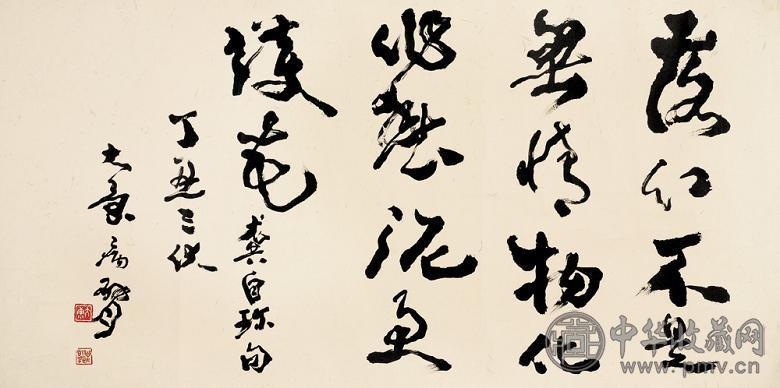 落红不是
無情物化
作春泥更
護花 龔自珍句
丁丑三伏
中华收藏网
www.pmv.cn